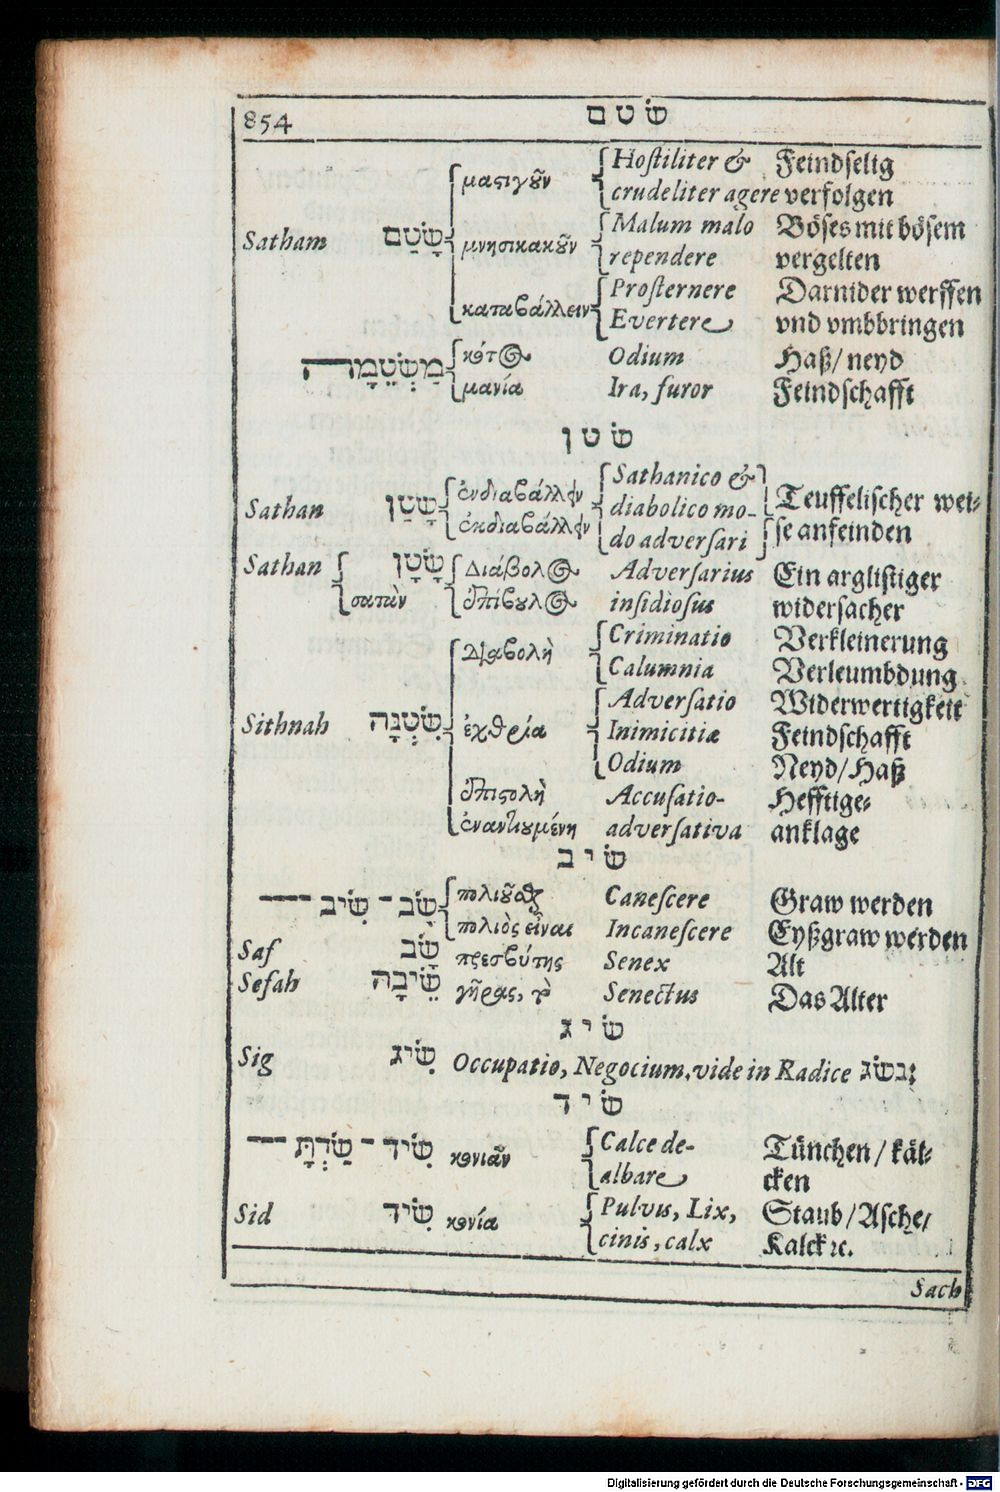 854 שׂטם
μαστιγοῦν Hostiliter & Feindselig
crudeliter agere verfolgen
Satham שָׂטַם μνησικακοῦν Malum malo Böses mit bösem
rependere vergelten
καταβάλλειν Prosternere Darnider werffen
Evertere vnd vmbbringen
מַשְׂטֵמָה κότος Odium Haß/ neyd
μανία Ira, furor Feindschafft
שׂטן
Sathan שָׂטַן ἐνδιαβάλλειν Sathanico & Teuffelischer wei-
ἐκδιαβάλλειν diabolico mo- se anfeinden
do adversari
Sathan שָׂטָן Διάβολος Adversarius Ein arglistiger
σατὰν ἐπίβουλος insidiosus widersacher
Διαβολὴ Criminatio Verkleinerung
Calumnia Verleumbdung
Adversatio Widerwertigkeit
Sithnah שִׂטְנָה ἐχθρία Inimicitiæ Feindschafft
Odium Neyd/Haß
ἐπιστολὴ Accusatio- Hefftige-
ἐναντιουμένη adversativa anklage
שׂיב
שָׂב - שִׂיב πολιοῦσθαι Canescere Graw werden
πολιὸς εἶναι Incanescere Eyßgraw werden
Saf שָׂב πρεσβύτης Senex Alt
Sefah שֵׂיבָה γῆρας, τὸ Senectus Das Alter
שׂיג
Sig שִׂיג Occupatio, Negocium, vide in Radice נשׂג
שׂיד
שִׂיד - שַׂדְתָּ κονιᾶν Calce de- Tünchen/ käl-
albare cken
Sid שִׂיד κονία Pulvis, Lix, Staub/Asche/
cinis, calx Kalck ꝛc.
Sach
Digitalisierung gefördert durch die Deutsche Forschungsgemeinschaft - DFG